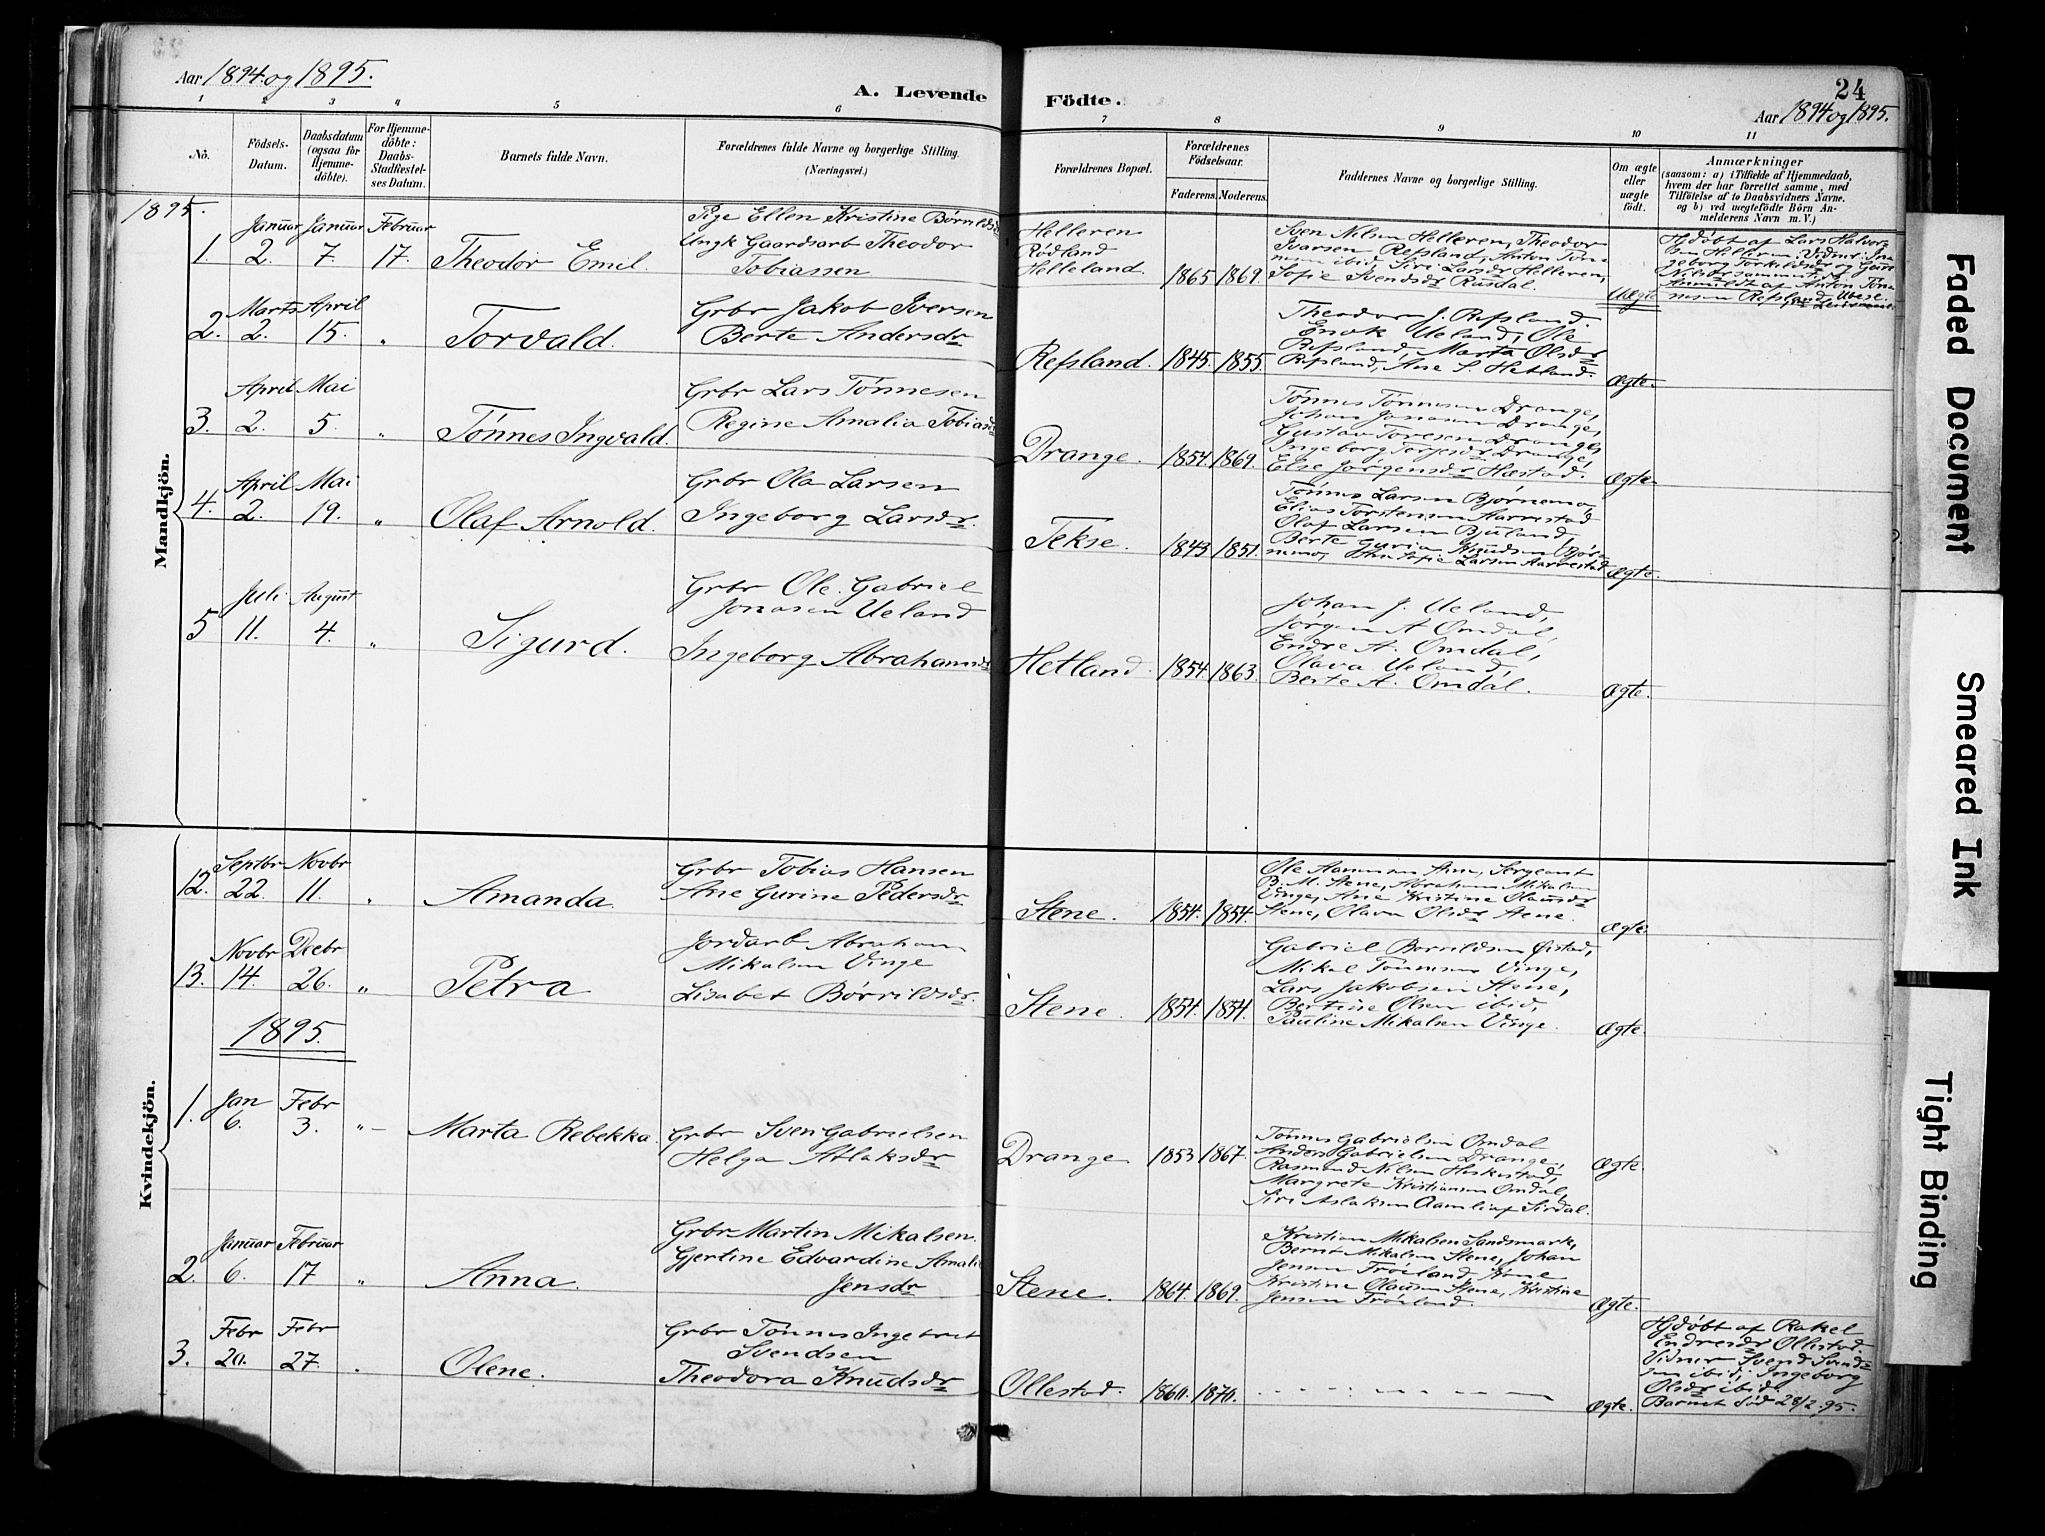 Aar 1894 og 1895.
A. Levende Födte.
24
Aar 1894 og 1895.
1 2 3 4 5 6 7 8 9 10 11
No.
Födsels-Datum.
Daabsdatum (ogsaa for Hjemme-döbte).
For Hjemme-döbte: Daabs-Stadfæstel-ses Datum.
Barnets fulde Navn.
Forældrenes fulde Navne og borgerlige Stilling. (Næringsvei.)
Forældrenes Bopæl.
Forældrenes Födselsaar.
Faderens. Moderens.
Faddernes Navne og borgerlige Stilling.
Om ægte eller uægte födt.
Anmærkninger
(saasom: a) i Tilfælde af Hjemmedaab,
hvem der har forrettet samme, med
Tilföielse af to Daabsvidners Navne.
og b) ved uægtefödte Börn An-
melderens Navn m. V.)
Mandkjön.
1895.
1 Januar 2. Januar 7. Februar 17. Theodor Emil.
Pige Ellen Kristine Børrildsdr
Ungk Gaardsarb Theodor
Tobiassen
Helleren
Rødland
Helleland. 1865 1869.
Sven Nilsen Helleren, Theodor
Ivarsen Refsland, Anton Tøn-
nesen ibid, Siri Larsdr Helleren,
Sofie Svendsdr Rusdal.
Uægte
Hjdøbt af Lars Halvor-
sen Helleren, Vidner: In-
geborg Torkildsdr og
Nilsdr sammesteds
Anmeldt af Anton Tøn-
nesen Refsland,
2. Marts 2. April 15. " Torvald.
Grbr Jakob Iversen
Berte Andersdr
Refsland. 1845. 1855.
Theodor J. Refsland.
Enok Ueland, Ole
Refsland, Marta Olsdr
Refsland, Ane S. Hetland.
Ægte.
3. April 2. Mai 5. " Tønnes Ingvald.
Grbr Lars Tønnesen
Regine Amalia Tobiasdr
Drange. 1854. 1869.
Tønnes Tønnesen Drange,
Johan Jonassen Drange,
Gustav Toresen Drange,
Ingeborg Torjesdr Drange,
Else Jørgensdr Hæstad.
Ægte.
4. April 2. Mai 19. " Olaf Arnold.
Grbr Ola Larsen
Ingeborg Larsdr.
Tekse. 1843. 1851.
Tønnes Larsen Bjørnemo,
Elias Torstensen Harrestad
Olaf Larsen Bjuland
Berte Guria Knudsen Bjør-
nemo, Larsen Aarrestad
Ægte.
5 Juli 11. August 4. " Sigurd.
Grbr Ole Gabriel
Jonasen Ueland
Ingeborg Abrahamsdr
Hetland. 1854. 1863.
Johan J. Ueland,
Jørgen A Omdal,
Endre A. Omdal,
Olava Ueland,
Berte A. Omdal.
Ægte.
Kvindekjön.
12. Septbr 22. Novbr 11. " Amanda.
Grbr Tobias Hansen
Ane Gurine Pedersdr
Stene. 1854. 1854.
Ole Hansen Sergeant
B. M. Stene, Abraham Mikalsen
Vinge, Ane Kristine Olausdr
Stene, Olava Olsdr Stene.
Ægte.
13. Novbr 14. Decbr 26. " Petra
Jordarb Abraham
Mikalsen Vinge
Lisabet Børrildsdr.
Stene. 1854. 1854.
Gabriel Børrildsen Ørstad,
Mikal Tønnesen Vinge,
Lars Jakobsen Stene,
Bertine Olsen ibid,
Pauline Mikalsen Vinge.
Ægte.
1895.
1. Jan 6. Febr 3. " Marta Rebekka.
Grbr Sven Gabrielsen
Helga Atlaksdr
Drange. 1853 1867.
Tønnes Gabrielsen Omdal
Anders Gabrielsen Drange,
Rasmund Nilsen Heskestad,
Margrete Kristiansen Omdal,
Siri Aslaksen Aamli af Sirdal.
Ægte.
2. Januar 6. Februar 17 " Anna.
Grbr Martin Mikalsen.
Gjertine Edvardine Amalie
Jensdr
Stene. 1864. 1869.
Kristian Mikalsen Sandsmark,
Bernt Mikalsen Stene, Johan
Jensen Trøiland, Ane
Kristine Olausen Stene, Kristine
Jensen Trøiland.
Ægte.
3. Febr 20. Febr 27. " Olene.
Grbr Tønnes Ingebret
Svendsen
Theodora Knudsdr
Ollestad. 1860. 1870.
Ægte.
Hjdøbt af Rakel
Endresdr Ollestad.
Vidner Svend Svend-
sen ibid, Ingeborg
Olsdr ibid.
Barnet død 28/2 95.
Faded Document
Smeared Ink
Tight Binding